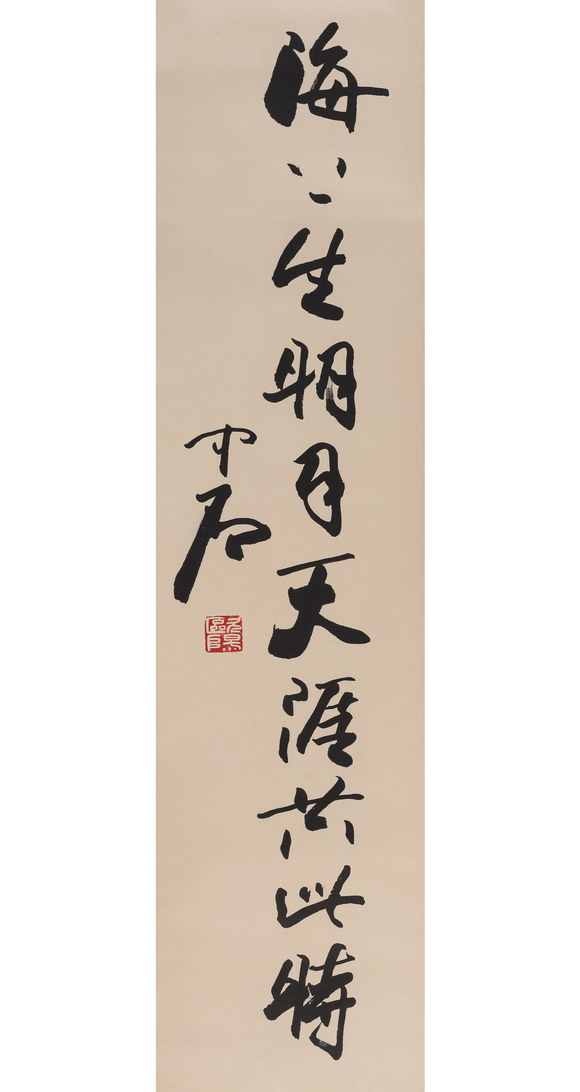 海上生明月天涯共此時
中石